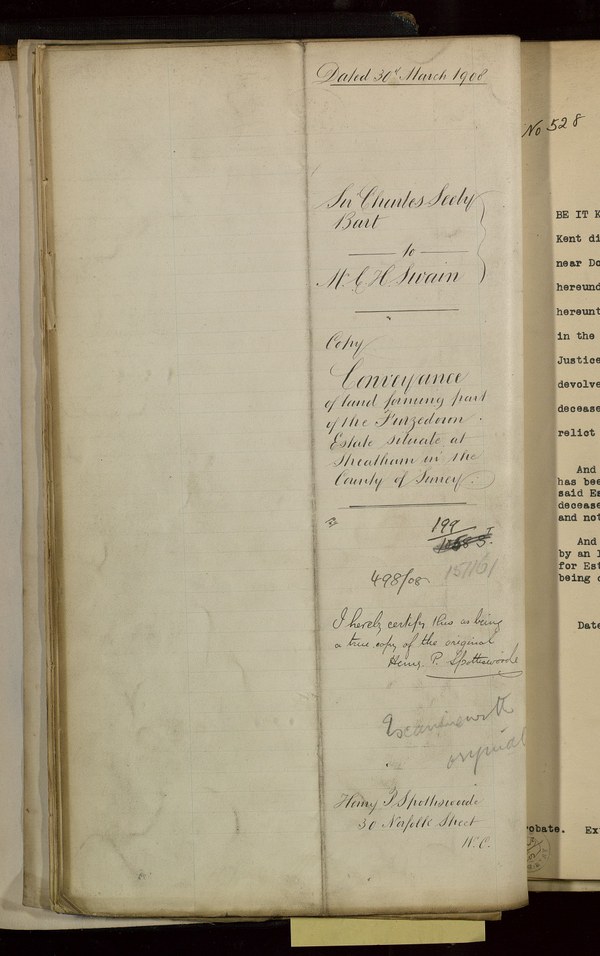 Dated 30th March 1908
Sir Charles Seely
Bart
to
Mr C H Swain
Copy
Conveyance
of land forming part
of the Furzedown
Estate situate at
Streatham in the
County of Surrey.
199
498/08
15/1161
I hereby certify this as being
a true copy of the original
Henry P. Spottiswoode
Examined with
original
Henry P Spottiswoode
30 Norfolk Street
W.C.
No 528
BE IT K
Kent di
near Do
hereund
hereunt
in the
Justice
devolve
decease
relict
And
has bee
said Es
decease
and not
And
by an I
for Est
being c
Date
robate. Ex